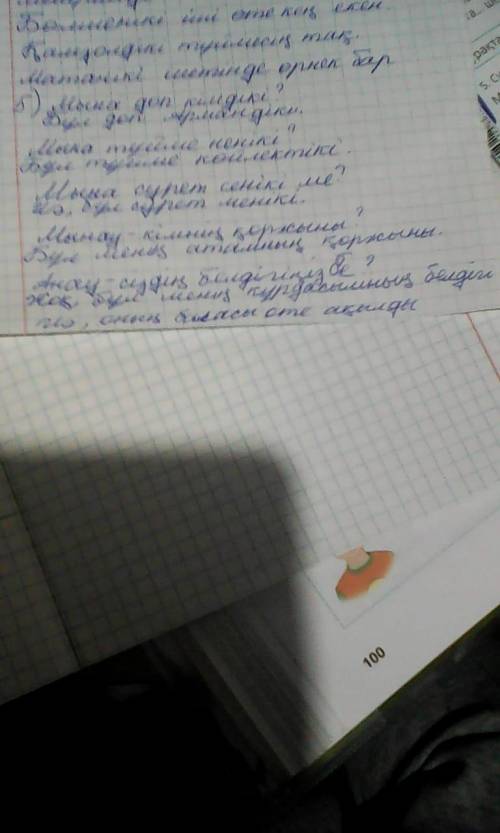 Бөлменікі іші өте кең екен.
Қамзолдікі түймесің тақ.
Матанікі шетінде өрнек бар
Б) Мына доп кімдікі?
Бұл доп Армандікі.
Мына түйме ненікі?
Бұл түйме көйлектікі.
Мына сурет сенікі ме?
Иә, бұл сурет менікі.
Мынау - кімнің қоржыны?
Бұл менің атамның қоржыны.
Анау - сіздің белдігіңіз бе?
Жоқ, бұл менің құрдасымның белдігі
Иә, оның баласы өте ақылды
100
5. С